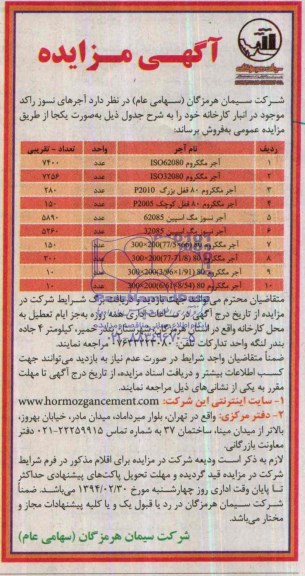 آگهـی مـزایده
شرکت سیمان هرمزگان (سهامی عام) در نظر دارد آجرهای نسوز راکد
موجود در انبار کارخانه خود را به شرح جدول ذیل به‌صورت یکجا از طریق
مزایده عمومی به‌فروش برساند:
ردیف نام آجر واحد تعداد - تقریبی
۱ آجر مگکروم ISO62080 عدد ۷۴۰۰
۲ آجر مگکروم ISO32080 عدد ۷۲۵۶
۳ آجر مگکروم ۸۰ قفل بزرگ P2010 عدد ۲۸۰
۴ آجر مگکروم ۸۰ قفل کوچک P2005 عدد ۱۵۰
۵ آجر نسوز مگ اسپین 62085 عدد ۵۸۹۰
۶ آجر نسوز مگ اسپین 32085 عدد ۵۲۶۰
۷ آجر مگکروم 80 300×200 عدد ۱۵۰
۸ آجر مگکروم 80 (77-71/8)×200×300 عدد ۳۰۰
۹ آجر مگکروم 80 300×200 عدد ۱۰
۱۰ آجر مگکروم 80 300×200 عدد ۱۰
متقاضیان محترم می‌توانند جهت بازدید و دریافت برگ شرایط شرکت در
مزایده از تاریخ درج آگهی در ساعات اداری همه روزه به‌جز ایام تعطیل به
محل کارخانه واقع در استان هرمزگان، شهرستان بندر خمیر، کیلومتر ۴ جاده
بندر لنگه واحد تدارکات تلفن مراجعه نمایند.
ضمناً متقاضیان واجد شرایط در صورت عدم نیاز به بازدید می‌توانند جهت
کسب اطلاعات بیشتر و دریافت اسناد مزایده، از تاریخ درج آگهی تا مهلت
مقرر به یکی از نشانی‌های ذیل مراجعه نمایند.
۱- سایت اینترنتی این شرکت: www.hormozgancement.com
۲- دفتر مرکزی: واقع در تهران، بلوار میرداماد، میدان مادر، خیابان بهروز،
بالاتر از میدان مینا، ساختمان ۳۷ به شماره تماس ۲۲۲۵۹۹۱۵-۰۲۱ دفتر
معاونت بازرگانی.
لازم به ذکر است ودیعه شرکت در مزایده برای اقلام مذکور در فرم شرایط
شرکت در مزایده قید گردیده و مهلت تحویل پاکت‌های پیشنهادی حداکثر
تا پایان وقت اداری روز چهارشنبه مورخ ۱۳۹۴/۰۲/۳۰ می‌باشد. ضمناً
شرکت سیمان هرمزگان در رد یا قبول یک و یا کلیه پیشنهادات مجاز و
مختار می‌باشد.
شرکت سیمان هرمزگان (سهامی عام)